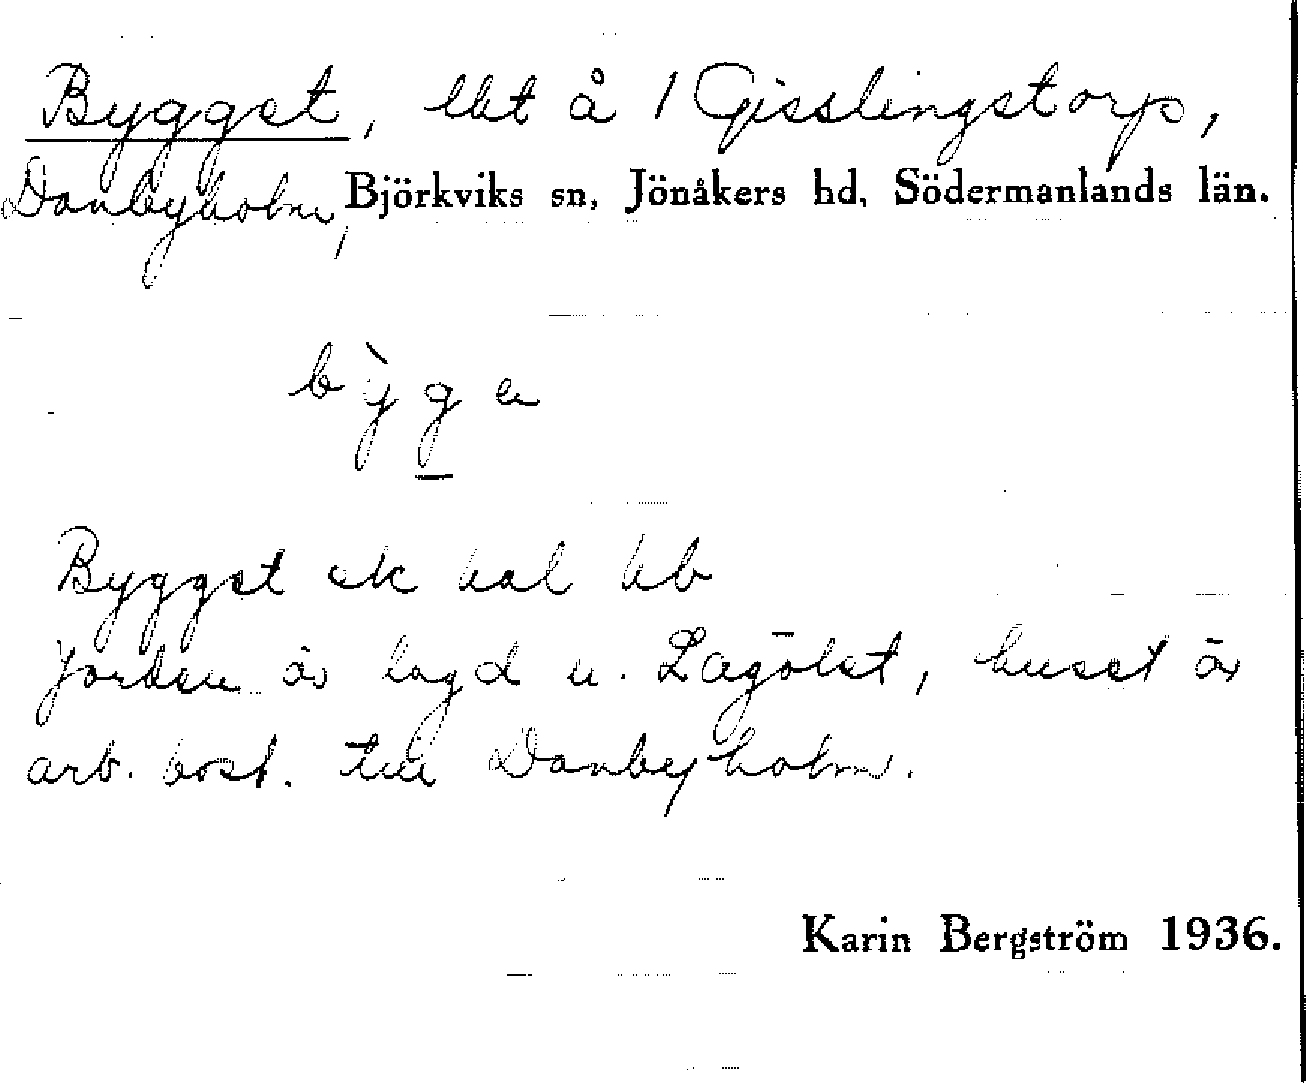 Bygget, lht å 1 Gisslingstorp,
Danbyholm, Björkviks sn, Jönåkers hd, Södermanlands län.
bỳge
Bygget ek hal hb
Jorden är lagd u. Lagölet, huset är
arb. bost. till Danbyholm.
Karin Bergström 1936.